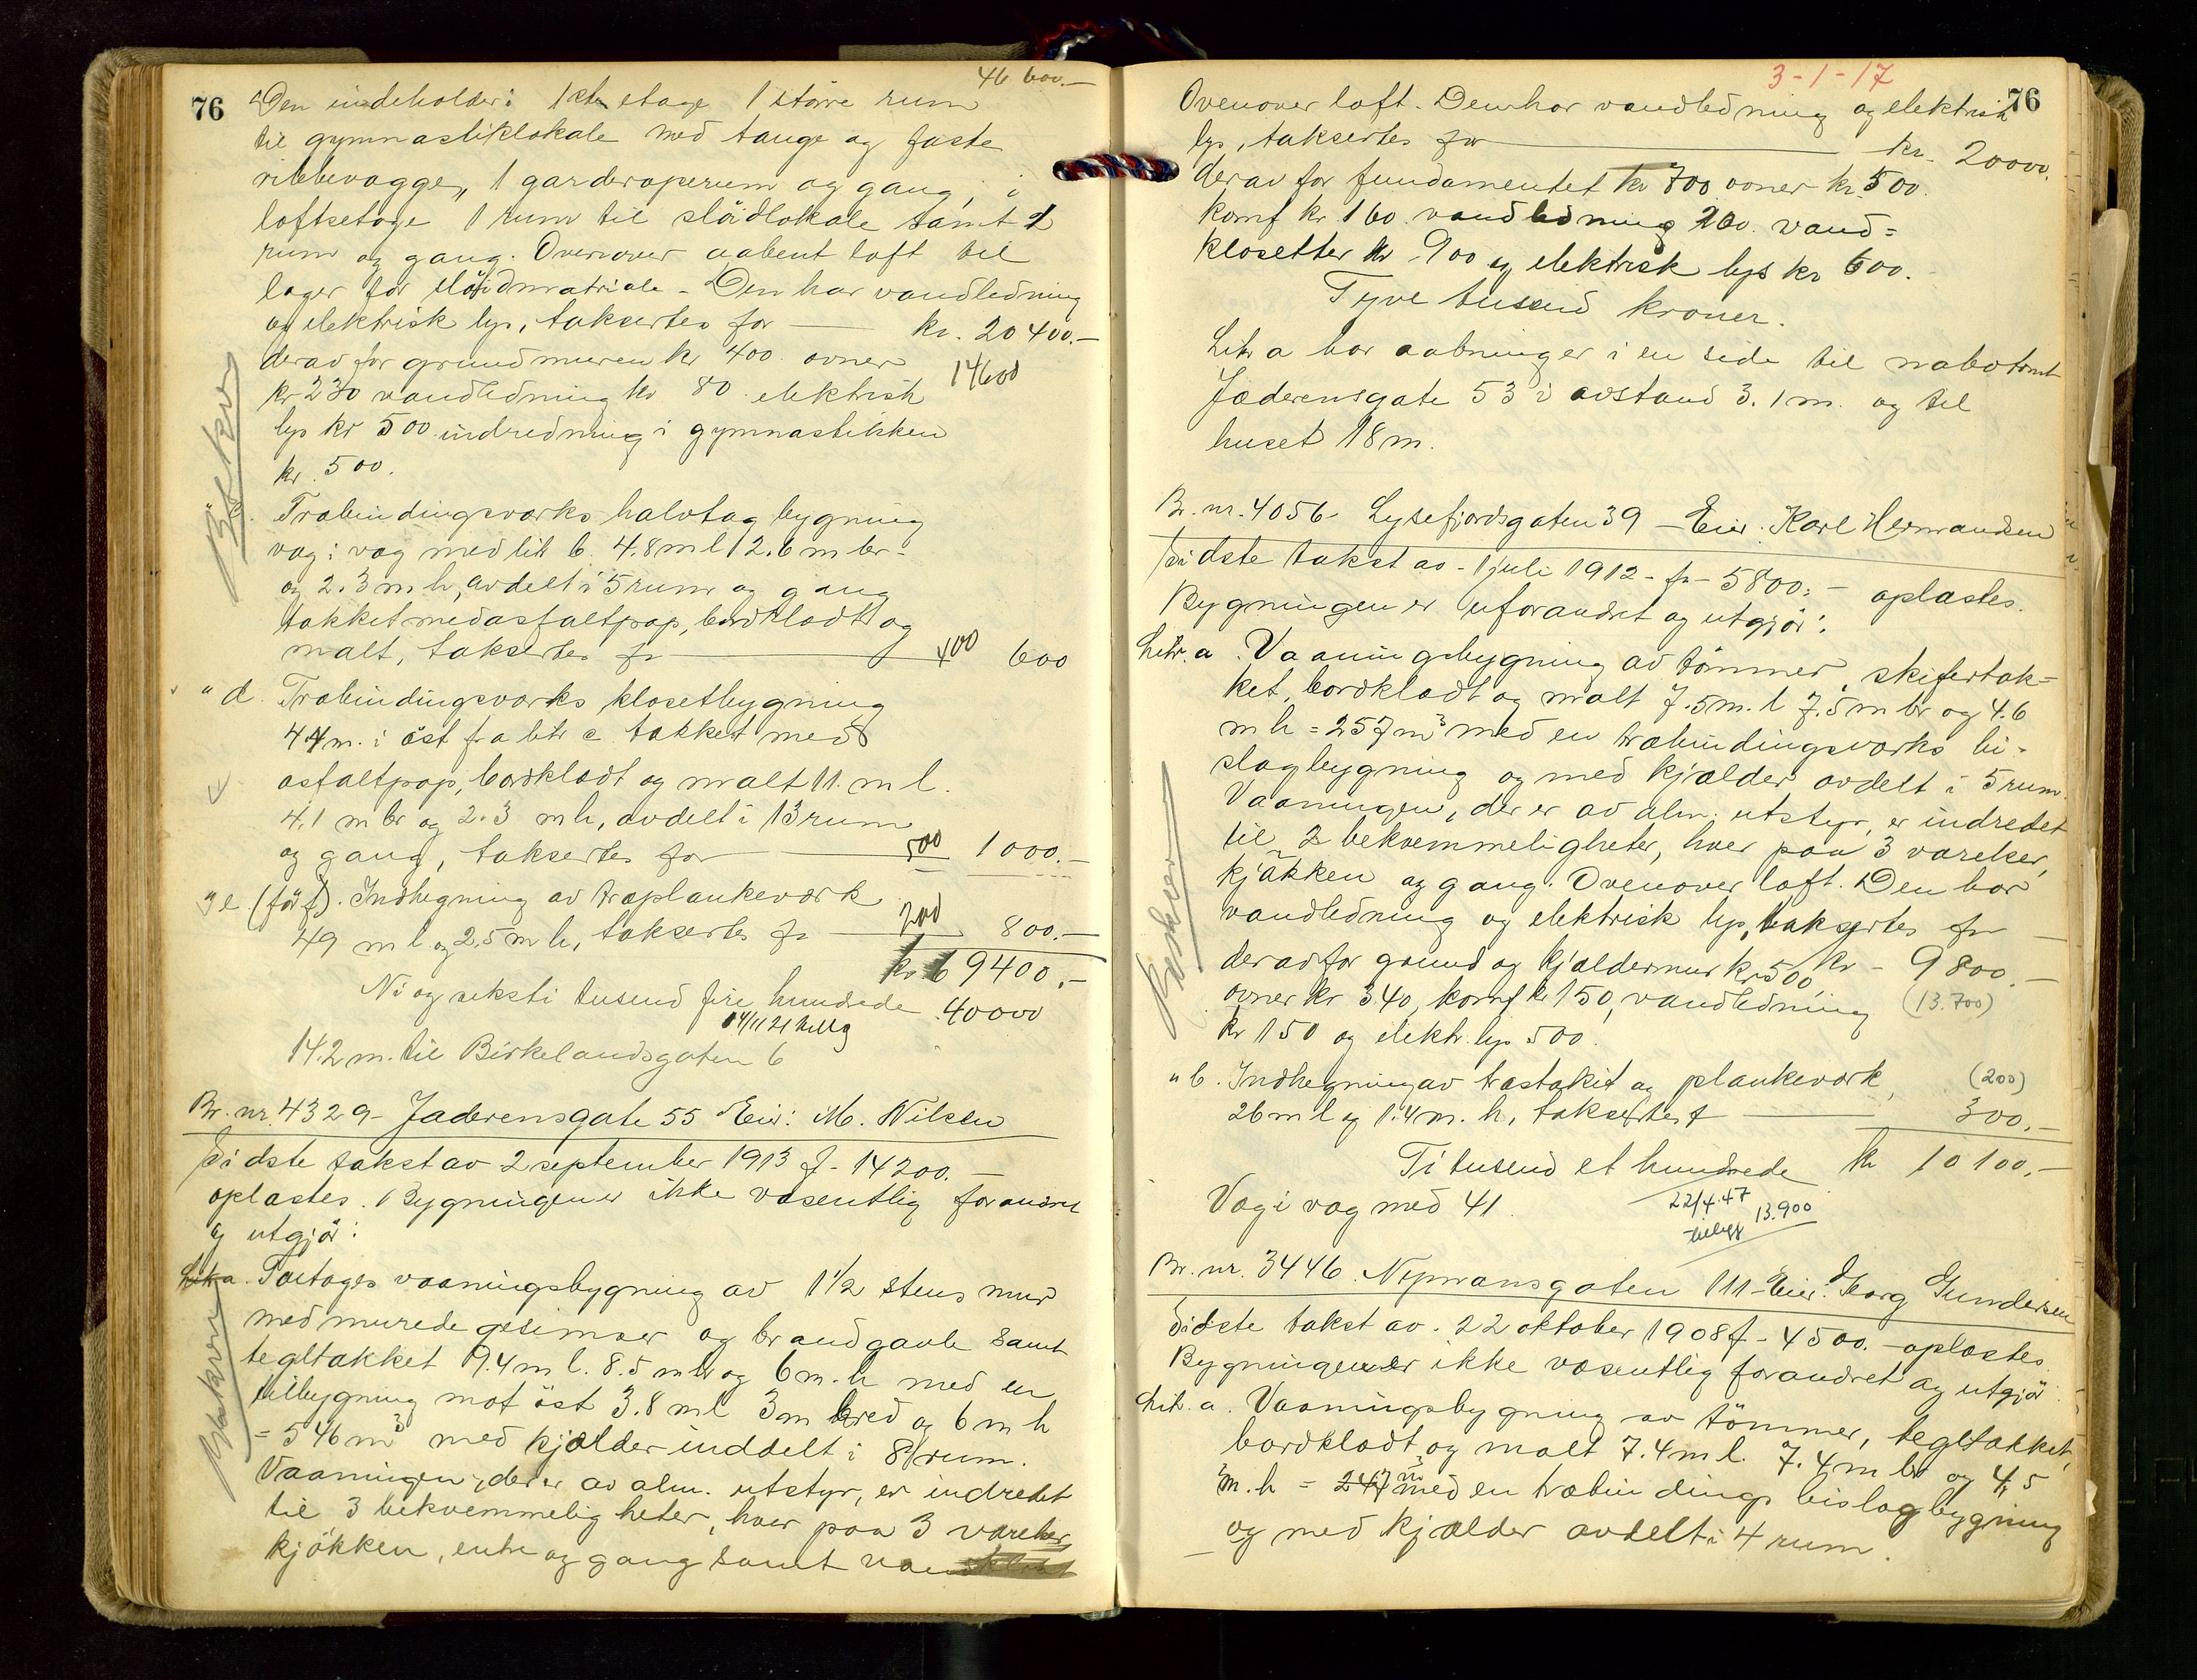 46 600.-
76 Den indeholder: 1ste etage 1 större rum
til gymnastiklokale med tauge og faste
ribbevægge, 1 garderoperum og gang, i
loftsetage 1 rum til slöidlokale samt 2
rum og gang. Ovenover aabent loft til
lager for slöidmatriale - Den har vandledning
og elektrisk lys, taksertes for — kr. 20400.-
derav for grundmuren kr 400 ovner 14600
kr 230 vandledning kr 80 elektrisk
lys kr 500 indredning i gymnastikken
kr. 500.
Træbindingsværks halvtag bygning
væg i væg med litr b. 4.8 m l 2.6 m br-
og 2.3 m h, avdelt i 5 rum og gang
tækket med asfaltpap, bordklædt og
malt, taksertes fr — 400 600
" d. Træbindingsværks klosetbygning
4.4 m. i öst fra litr c tækket med
asfaltpap, bordklædt og malt 11. m l.
4.1 m br og 2.3 m h, avdelt i 13 rum
og gang, taksertes for — 500 1000.-
" e (för f). Indhegning av træplankeværk
49 m l og 2,5 m h, taksertes fr — 200 800.-
kr 69400.-
Ni og seksti tusend fire hundrede 40000
14/11 21
14.2 m. til Birkelandsgaten 6
Br. nr. 4329 - Jæderensgate 55 Eier: M. Nilsen
Sidste takst av 2 september 1913 f - 14200.-
oplæstes. Bygningen er ikke væsentlig forandret
og utgjör:
Litr a. Toetages vaaningsbygning av 1 1/2 stens mur
med murede gesimser og brandgavle samt
tegltækket 9.4 m l. 8.5 m br og 6 m. h med en
tilbygning mot öst 3.8 m l 3 m bred og 6 m h
= 546 m3 med kjælder inddelt i 8 rum.
Vaaningen, der er av alm. utstyr, er indredet
til 3 bekvemmeligheter, hver paa 3 værelser,
kjökken, entre og gang samt
3-1-17
Ovenover loft. Den har vandledning og elektrisk 76
lys, taksertes for — kr. 20000.
derav for fundamentet kr 700 ovner kr 500.
komf kr 160 vandledning 200. vand=
klosetter kr 900 og elektrisk lys kr 600.
Tyve tusend kroner.
Litr a har aabninger i en side til nabotomt
Jæderensgate 53 i avstand 3.1 m. og til
huset 18 m.
Br. nr. 4056 - Lysefjordsgaten 39 - Eier: Karl Hermandsen
Sidste takst av - 1 juli 1912 - fr - 5800.- oplæstes.
Bygningen er uforandret og utgjör:
Litr. a. Vaaningsbygning av tömmer, skifertæk=
ket, bordklædt og malt 7.5 m. l 7.5 m br og 4.6
m h = 257 m3 med en træbindingsværks bi-
slagbygning og med kjælder avdelt i 5 rum.
Vaaningen, der er av alm. utstyr, er indredet
til 2 bekvemmeligheter, hver paa 3 værelser,
kjøkken og gang. Ovenover loft. Den har
vandledning og elektrisk lys, taksertes for —
kr - 9800.-
derav for grund og kjældermur kr 500,
ovner kr 340, komf kr 150, vandledning (13.700)
kr 150 og elektr. lys 500.
" b. Indhegning av træstakit og plankeværk, (200)
26 m l og 1.4 m. h, taksertes f — 300.-
Ti tusend et hundrede kr 10100.-
Væg i væg med 41.
22/4.47
13.900
Br. nr. 3446. Nymansgaten 111 - Eier: Georg Gundersen
Sidste takst av. 22 oktober 1908 f - 4500. - oplæstes
Bygningen er ikke væsentlig forandret og utgjör
Litr. a. Vaaningsbygning av tömmer, tegltækket,
bordklædt og malt 7.4 m l. 7.4 m br og 4,5
m. h = 247 m3 med en træbindings bislagbygning
og med kjælder avdelt i 4 rum.